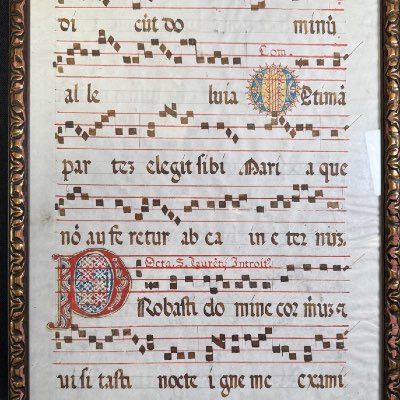 di cūt do minū
Com.
al le luia Optimā
par tez elegit sibi Mari a que
nō au fe retur ab ea in e ter nuz.
Octa. S. Laurēt; Introit
Probasti do mine cor
ui si tasti nocte i gne me exami